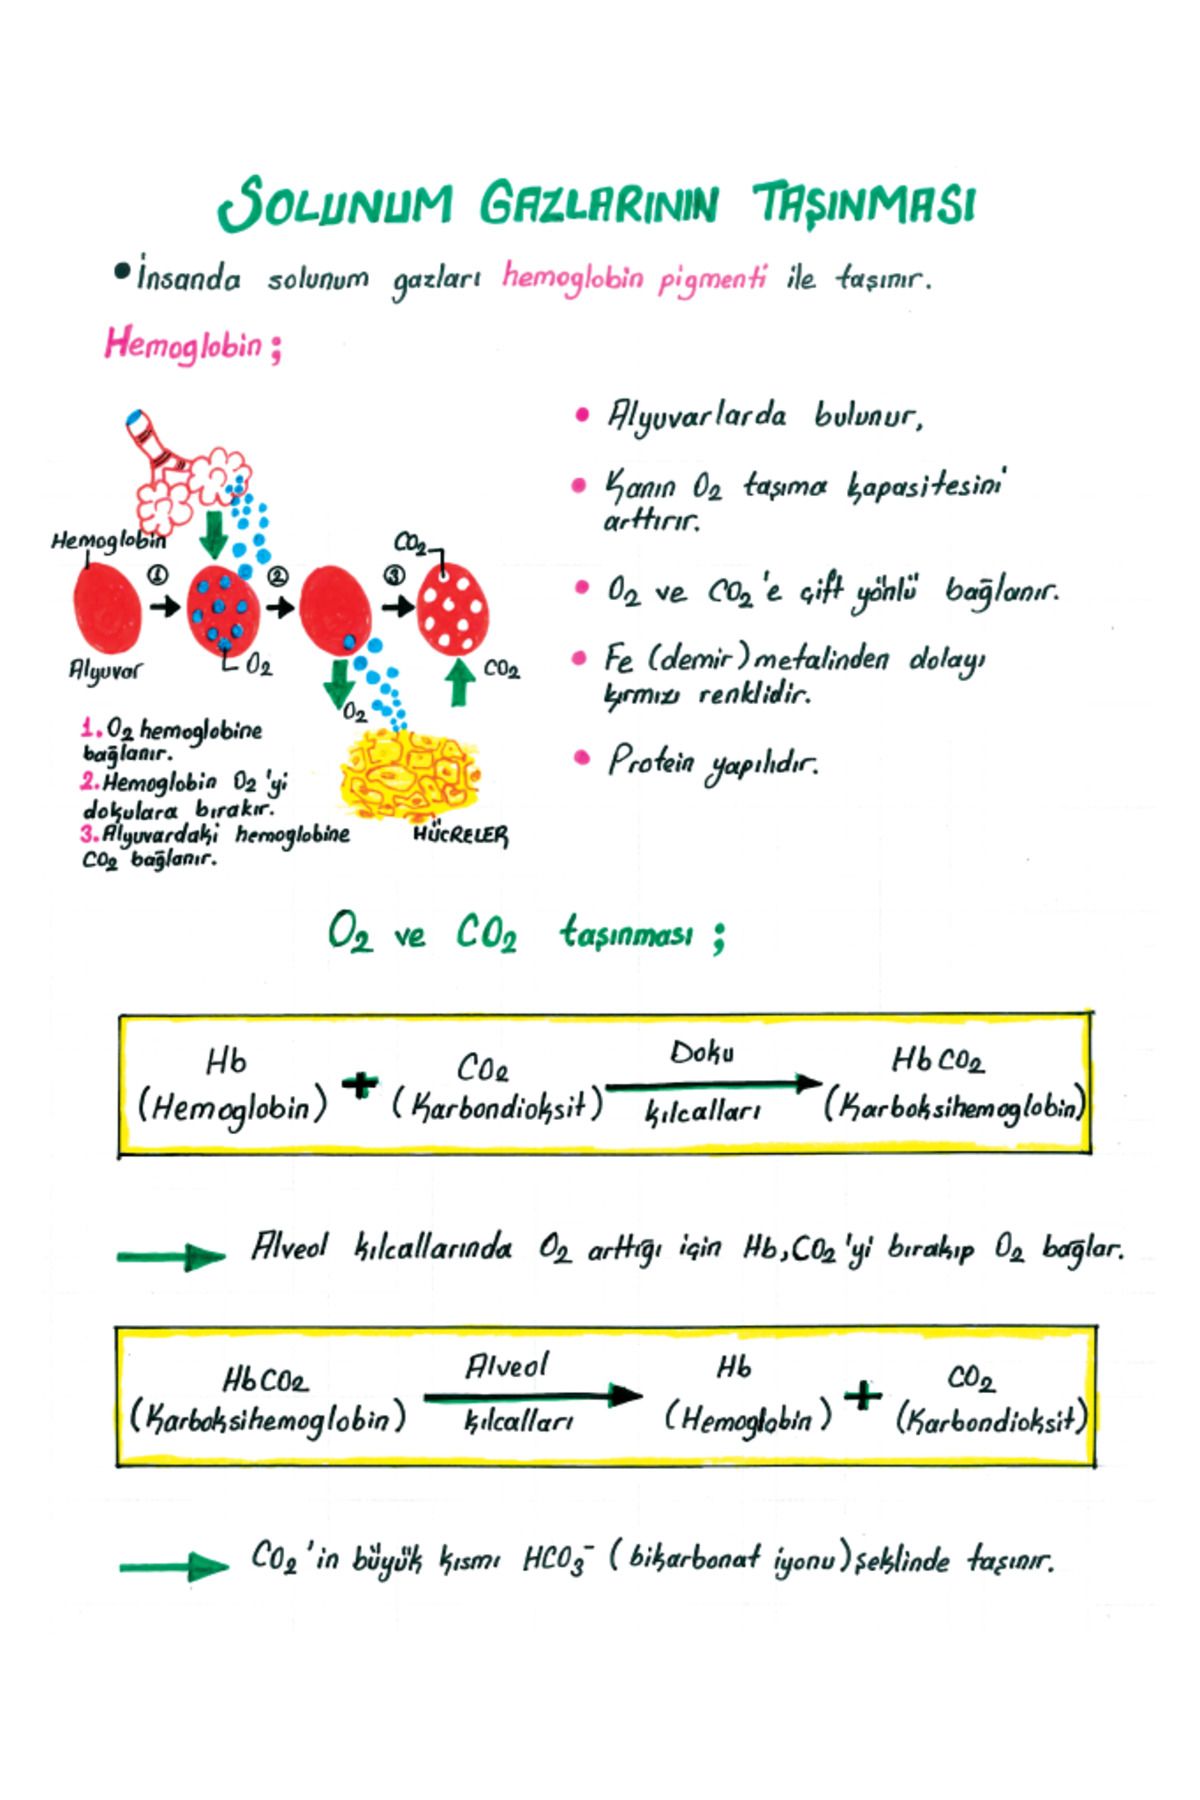 SOLUNUM GAZLARININ TAŞINMASI
• İnsanda solunum gazları hemoglobin pigmenti ile taşınır.
Hemoglobin ;
Hemoglobin
Alyuvar
1
2
3
O2
O2
CO2
CO2
HÜCRELER
1. O2 hemoglobine
bağlanır.
2. Hemoglobin O2 'yi
dokulara bırakır.
3. Alyuvardaki hemoglobine
CO2 bağlanır.
• Alyuvarlarda bulunur,
• Kanın O2 taşıma kapasitesini
arttırır.
• O2 ve CO2 'e çift yönlü bağlanır.
• Fe (demir) metalinden dolayı
kırmızı renklidir.
• Protein yapılıdır.
O2 ve CO2 taşınması ;
Hb + CO2 Doku HbCO2
(Hemoglobin) (Karbondioksit) kılcalları (Karboksihemoglobin)
Alveol kılcallarında O2 arttığı için Hb, CO2 'yi bırakıp O2 bağlar.
HbCO2 Alveol Hb + CO2
(Karboksihemoglobin) kılcalları (Hemoglobin) (Karbondioksit)
CO2 'in büyük kısmı HCO3⁻ (bikarbonat iyonu) şeklinde taşınır.